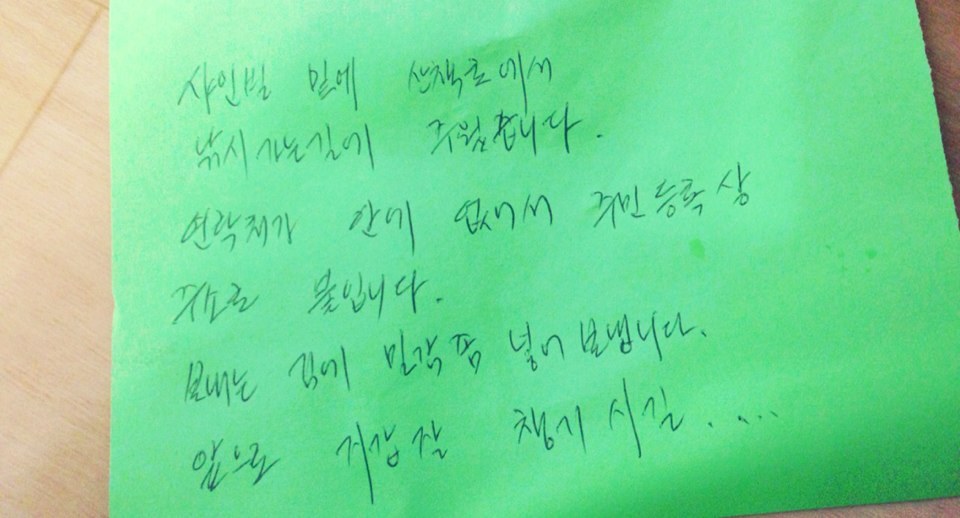 샤인빌 밑에 산책로에서
낚시 가는길에 주웠습니다.
연락처가 안에 없어서 주민등록상
주소로 붙입니다.
보내는 김에 밀감쫌 넣어 보냅니다.
앞으로 지갑 잘 챙기시길.....